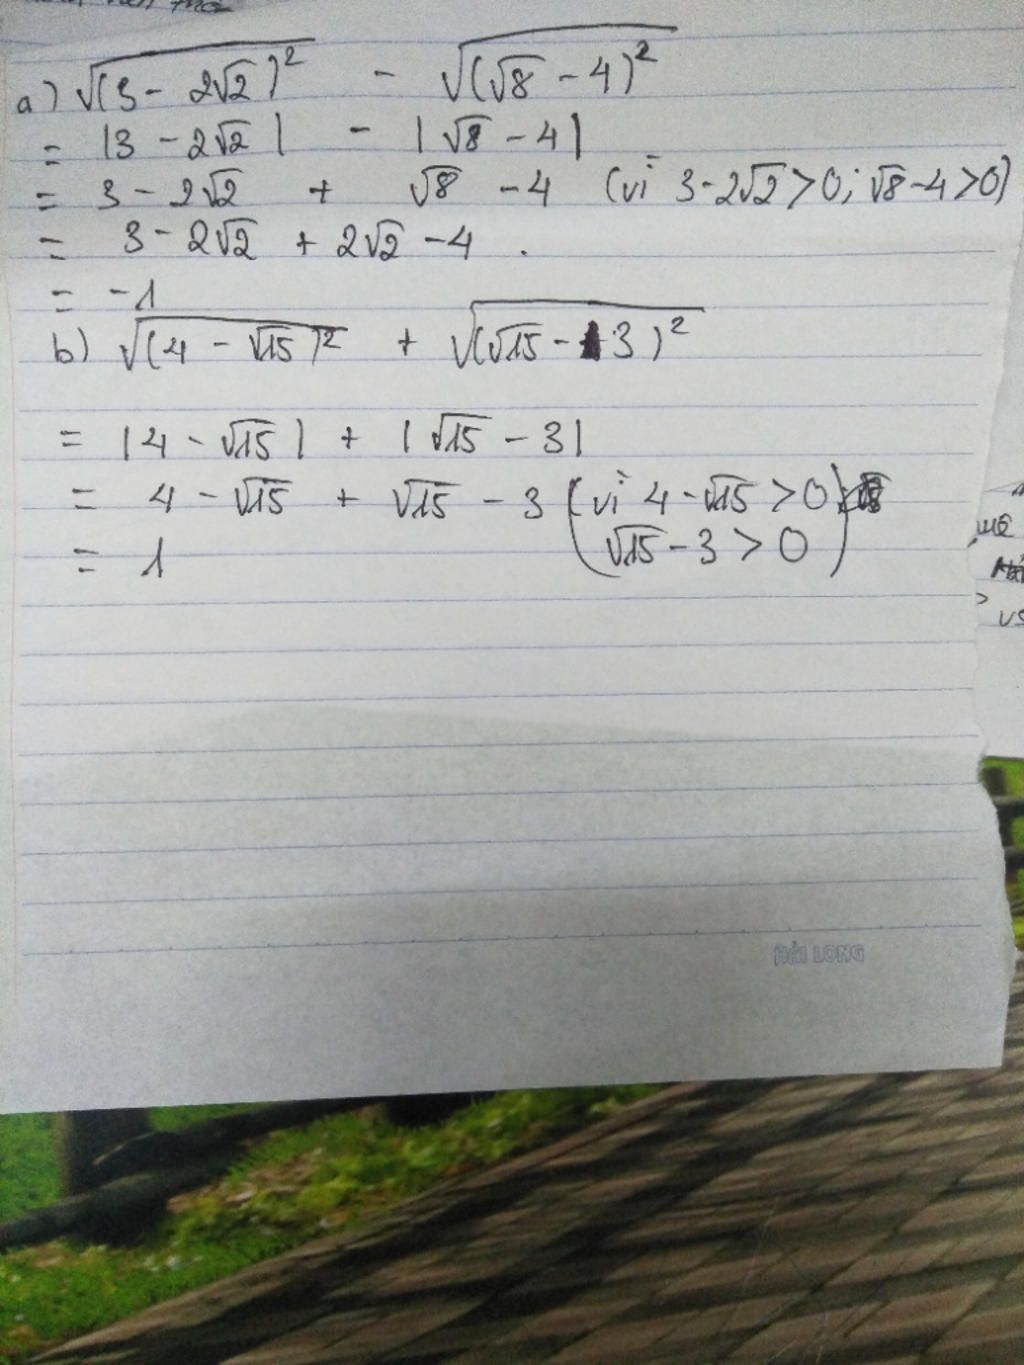 a) √(3 - 2√2)² - √(√8 - 4)²
= |3 - 2√2| - |√8 - 4|
= 3 - 2√2 + √8 - 4 (vì 3-2√2>0; √8-4>0)
= 3 - 2√2 + 2√2 - 4.
= -1
b) √(4 - √15)² + √(√15 - 3)²
= |4 - √15| + |√15 - 3|
= 4 - √15 + √15 - 3 (vì 4 - √15 > 0
√15 - 3 > 0)
= 1
HẢI LONG